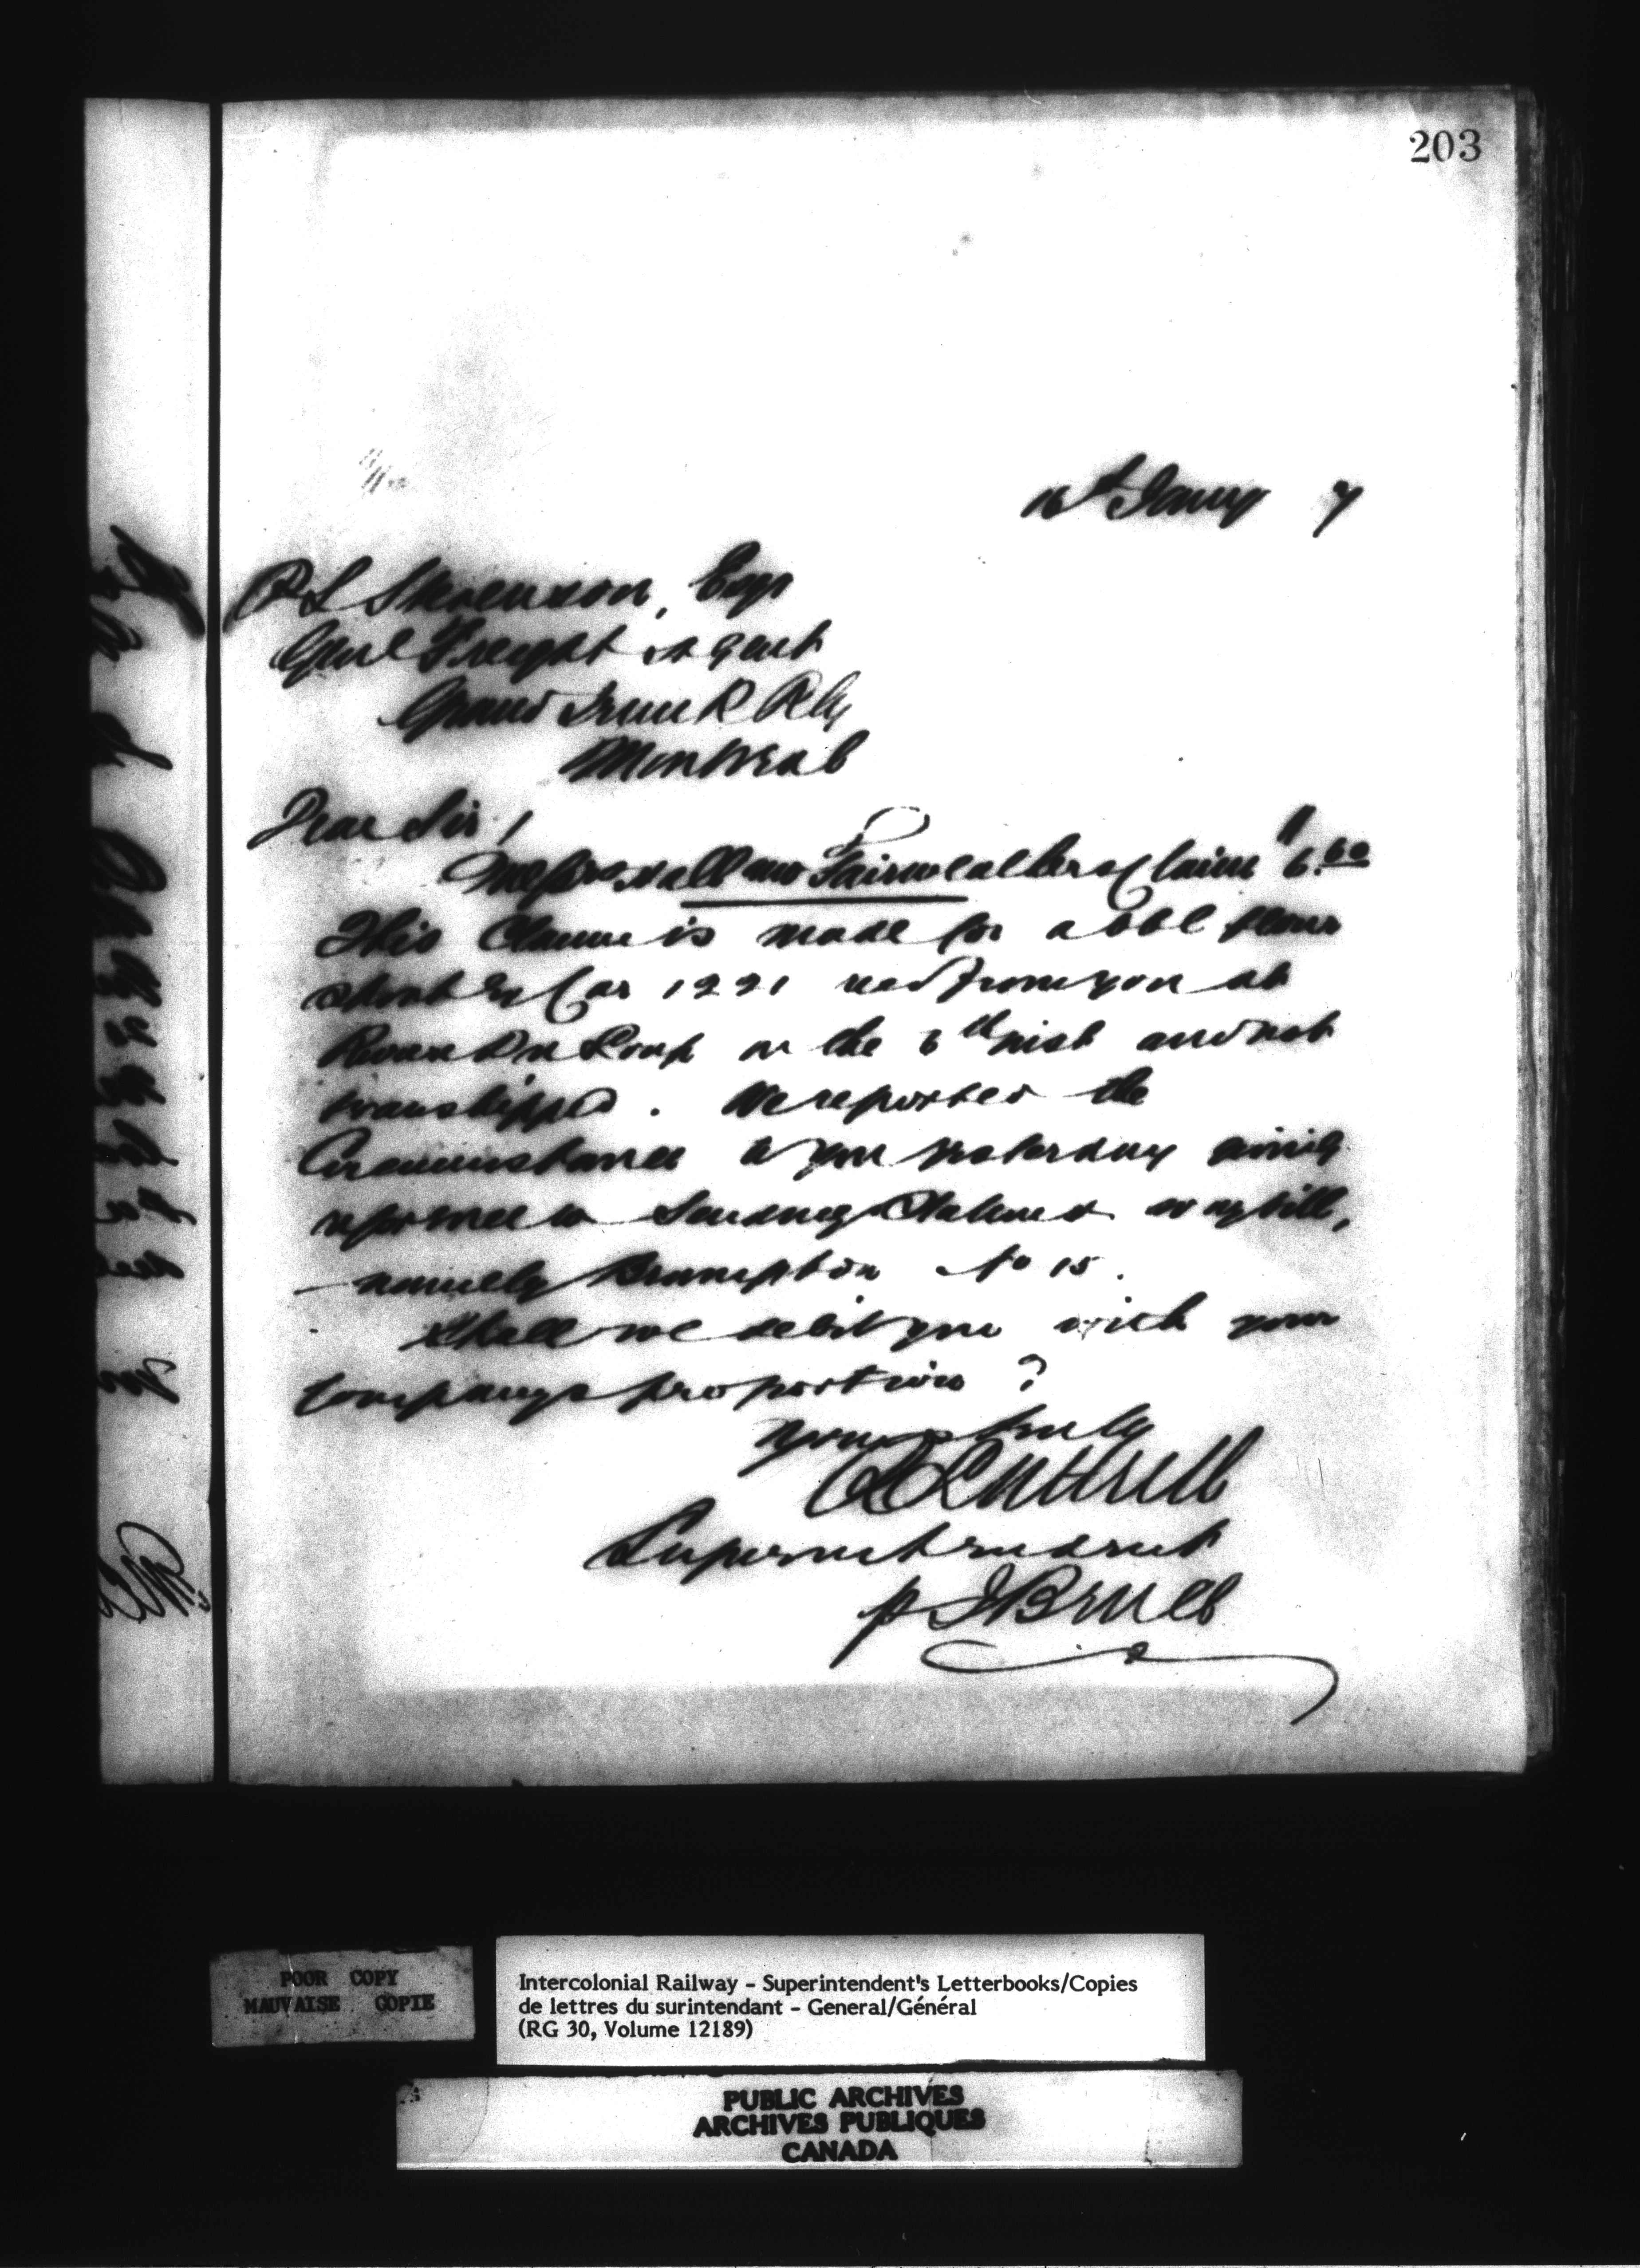 203
16th Jany 7
P S Stevenson, Esqr
Genl Freight Agent
Grand Trunk Rly
Montreal
Dear Sir /
Messrs Hall and Fairweathers Claim $6.60
This Claim is made for a bbl flour
short ex Car 1221 recd from you at
Riviere Du Loup on the 6th inst and not
transhipped. We reported the
Circumstances to you yesterday
reference to Sending Stations waybill,
namely Brampton No 15.
Shall we debit you with your
Companys proportion ?
Yours truly
C A Luttrell
Superintendent
p J Bruce
POOR COPY
MAUVAISE COPIE
Intercolonial Railway - Superintendent's Letterbooks/Copies
de lettres du surintendant - General/Général
(RG 30, Volume 12189)
PUBLIC ARCHIVES
ARCHIVES PUBLIQUES
CANADA